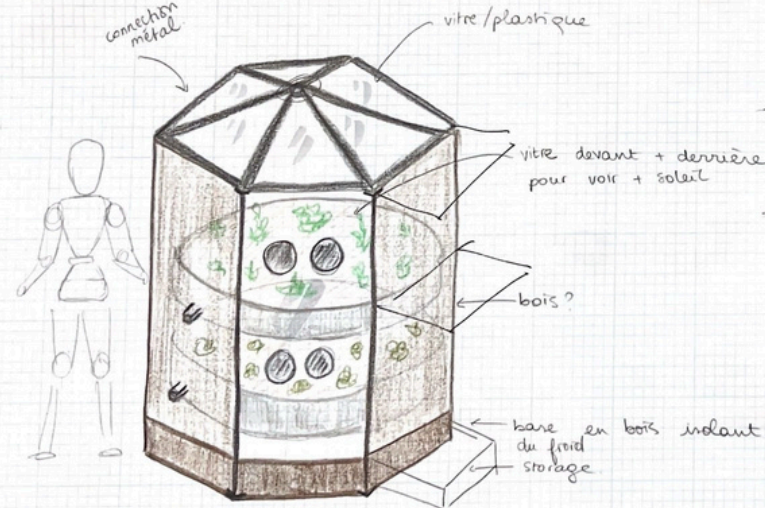 connection
métal.
vitre/plastique
vitre devant + derrière
pour voir + soleil
bois?
base en bois isolant
du froid
storage